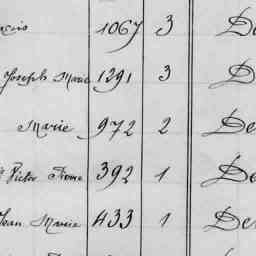 1067 3 De
Joseph Marie 1291 3 D
Marie 972 2 De
Victor Pierre 392 1 De
Jean Marie 433 1 De